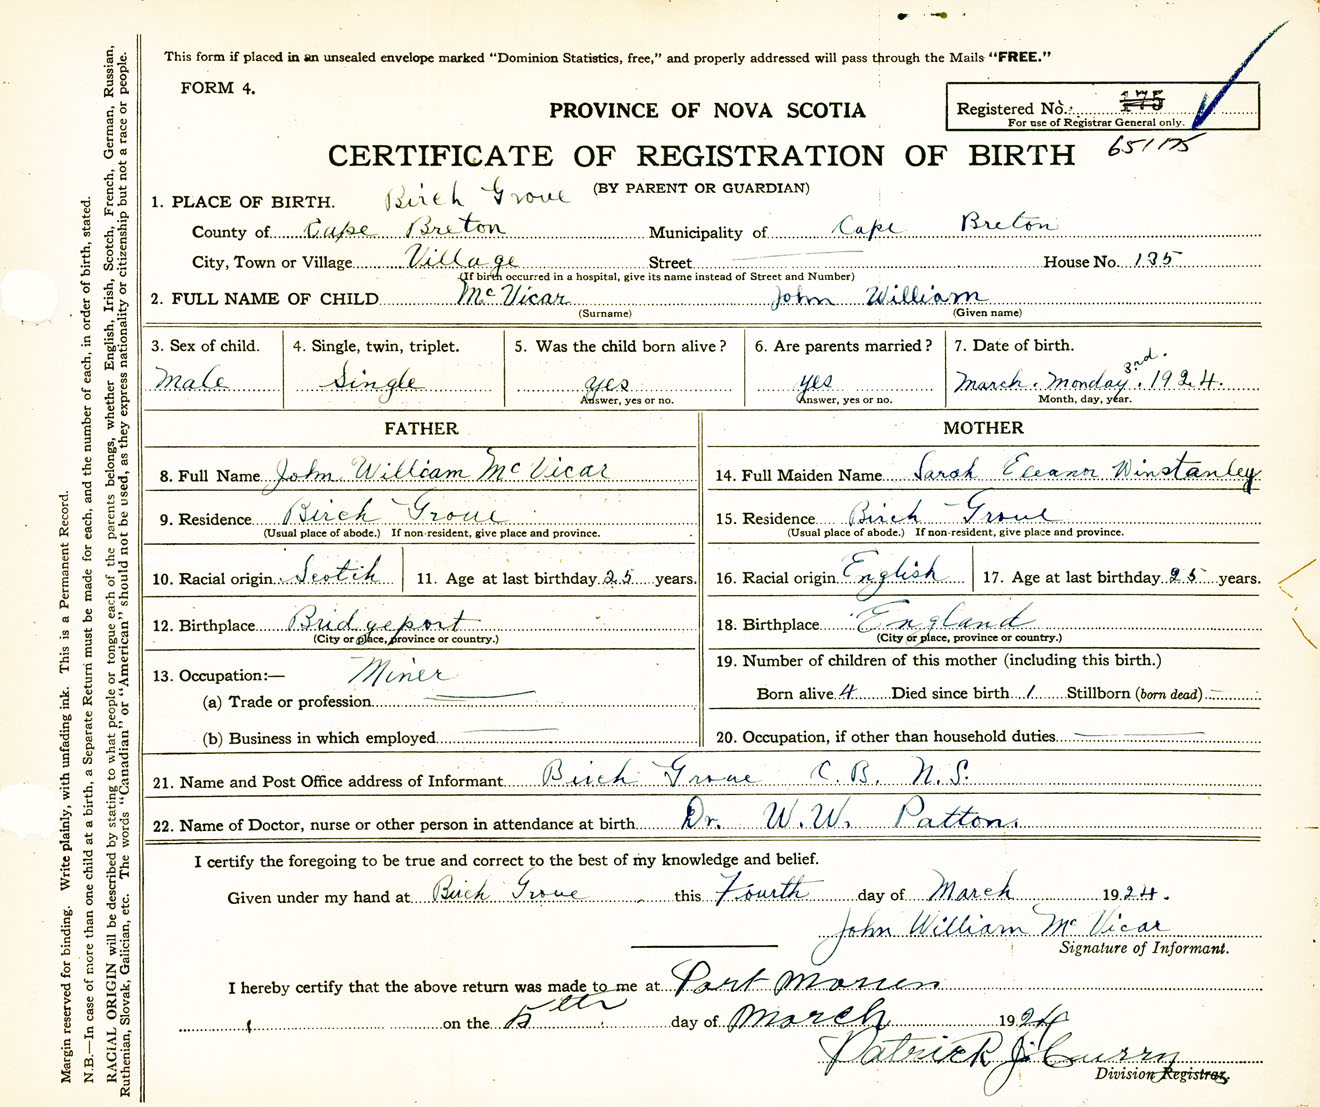 This form if placed in an unsealed envelope marked “Dominion Statistics, free,” and properly addressed will pass through the Mails “FREE.”
FORM 4.
PROVINCE OF NOVA SCOTIA
Registered No. 175
For use of Registrar General only.
651175
CERTIFICATE OF REGISTRATION OF BIRTH
(BY PARENT OR GUARDIAN)
1. PLACE OF BIRTH. Birch Grove
County of Cape Breton Municipality of Cape Breton
City, Town or Village Village Street House No. 135
(If birth occurred in a hospital, give its name instead of Street and Number)
2. FULL NAME OF CHILD McVicar John William
(Surname) (Given name)
3. Sex of child. 4. Single, twin, triplet. 5. Was the child born alive? 6. Are parents married? 7. Date of birth.
Male Single yes yes March. Monday 3rd. 1924.
Answer, yes or no. Answer, yes or no. Month, day, year.
FATHER MOTHER
8. Full Name John William McVicar 14. Full Maiden Name Sarah Eleanor Winstanley
9. Residence Birch Grove 15. Residence Birch Grove
(Usual place of abode.) If non-resident, give place and province. (Usual place of abode.) If non-resident, give place and province.
10. Racial origin Scotch 11. Age at last birthday 25 years. 16. Racial origin English 17. Age at last birthday 25 years.
12. Birthplace Bridgeport 18. Birthplace England
(City or place, province or country.) (City or place, province or country.)
13. Occupation:— Miner 19. Number of children of this mother (including this birth.)
(a) Trade or profession Born alive 4 Died since birth 1 Stillborn (born dead)
(b) Business in which employed 20. Occupation, if other than household duties
21. Name and Post Office address of Informant Birch Grove C.B. N.S.
22. Name of Doctor, nurse or other person in attendance at birth Dr. W.W. Patton.
I certify the foregoing to be true and correct to the best of my knowledge and belief.
Given under my hand at Birch Grove this Fourth day of March 1924.
John William McVicar
Signature of Informant.
I hereby certify that the above return was made to me at Port Morien
on the 5th day of March 1924
Patrick J. Curry
Division Registrar.
Margin reserved for binding. Write plainly, with unfading ink. This is a Permanent Record.
N.B.—In case of more than one child at a birth, a Separate Return must be made for each, and the number of each, in order of birth, stated.
RACIAL ORIGIN will be described by stating to what people or tongue each of the parents belongs, whether English, Irish, Scotch, French, German, Russian,
Ruthenian, Slovak, Galician, etc. The words “Canadian” or “American” should not be used, as they express nationality or citizenship but not a race or people.